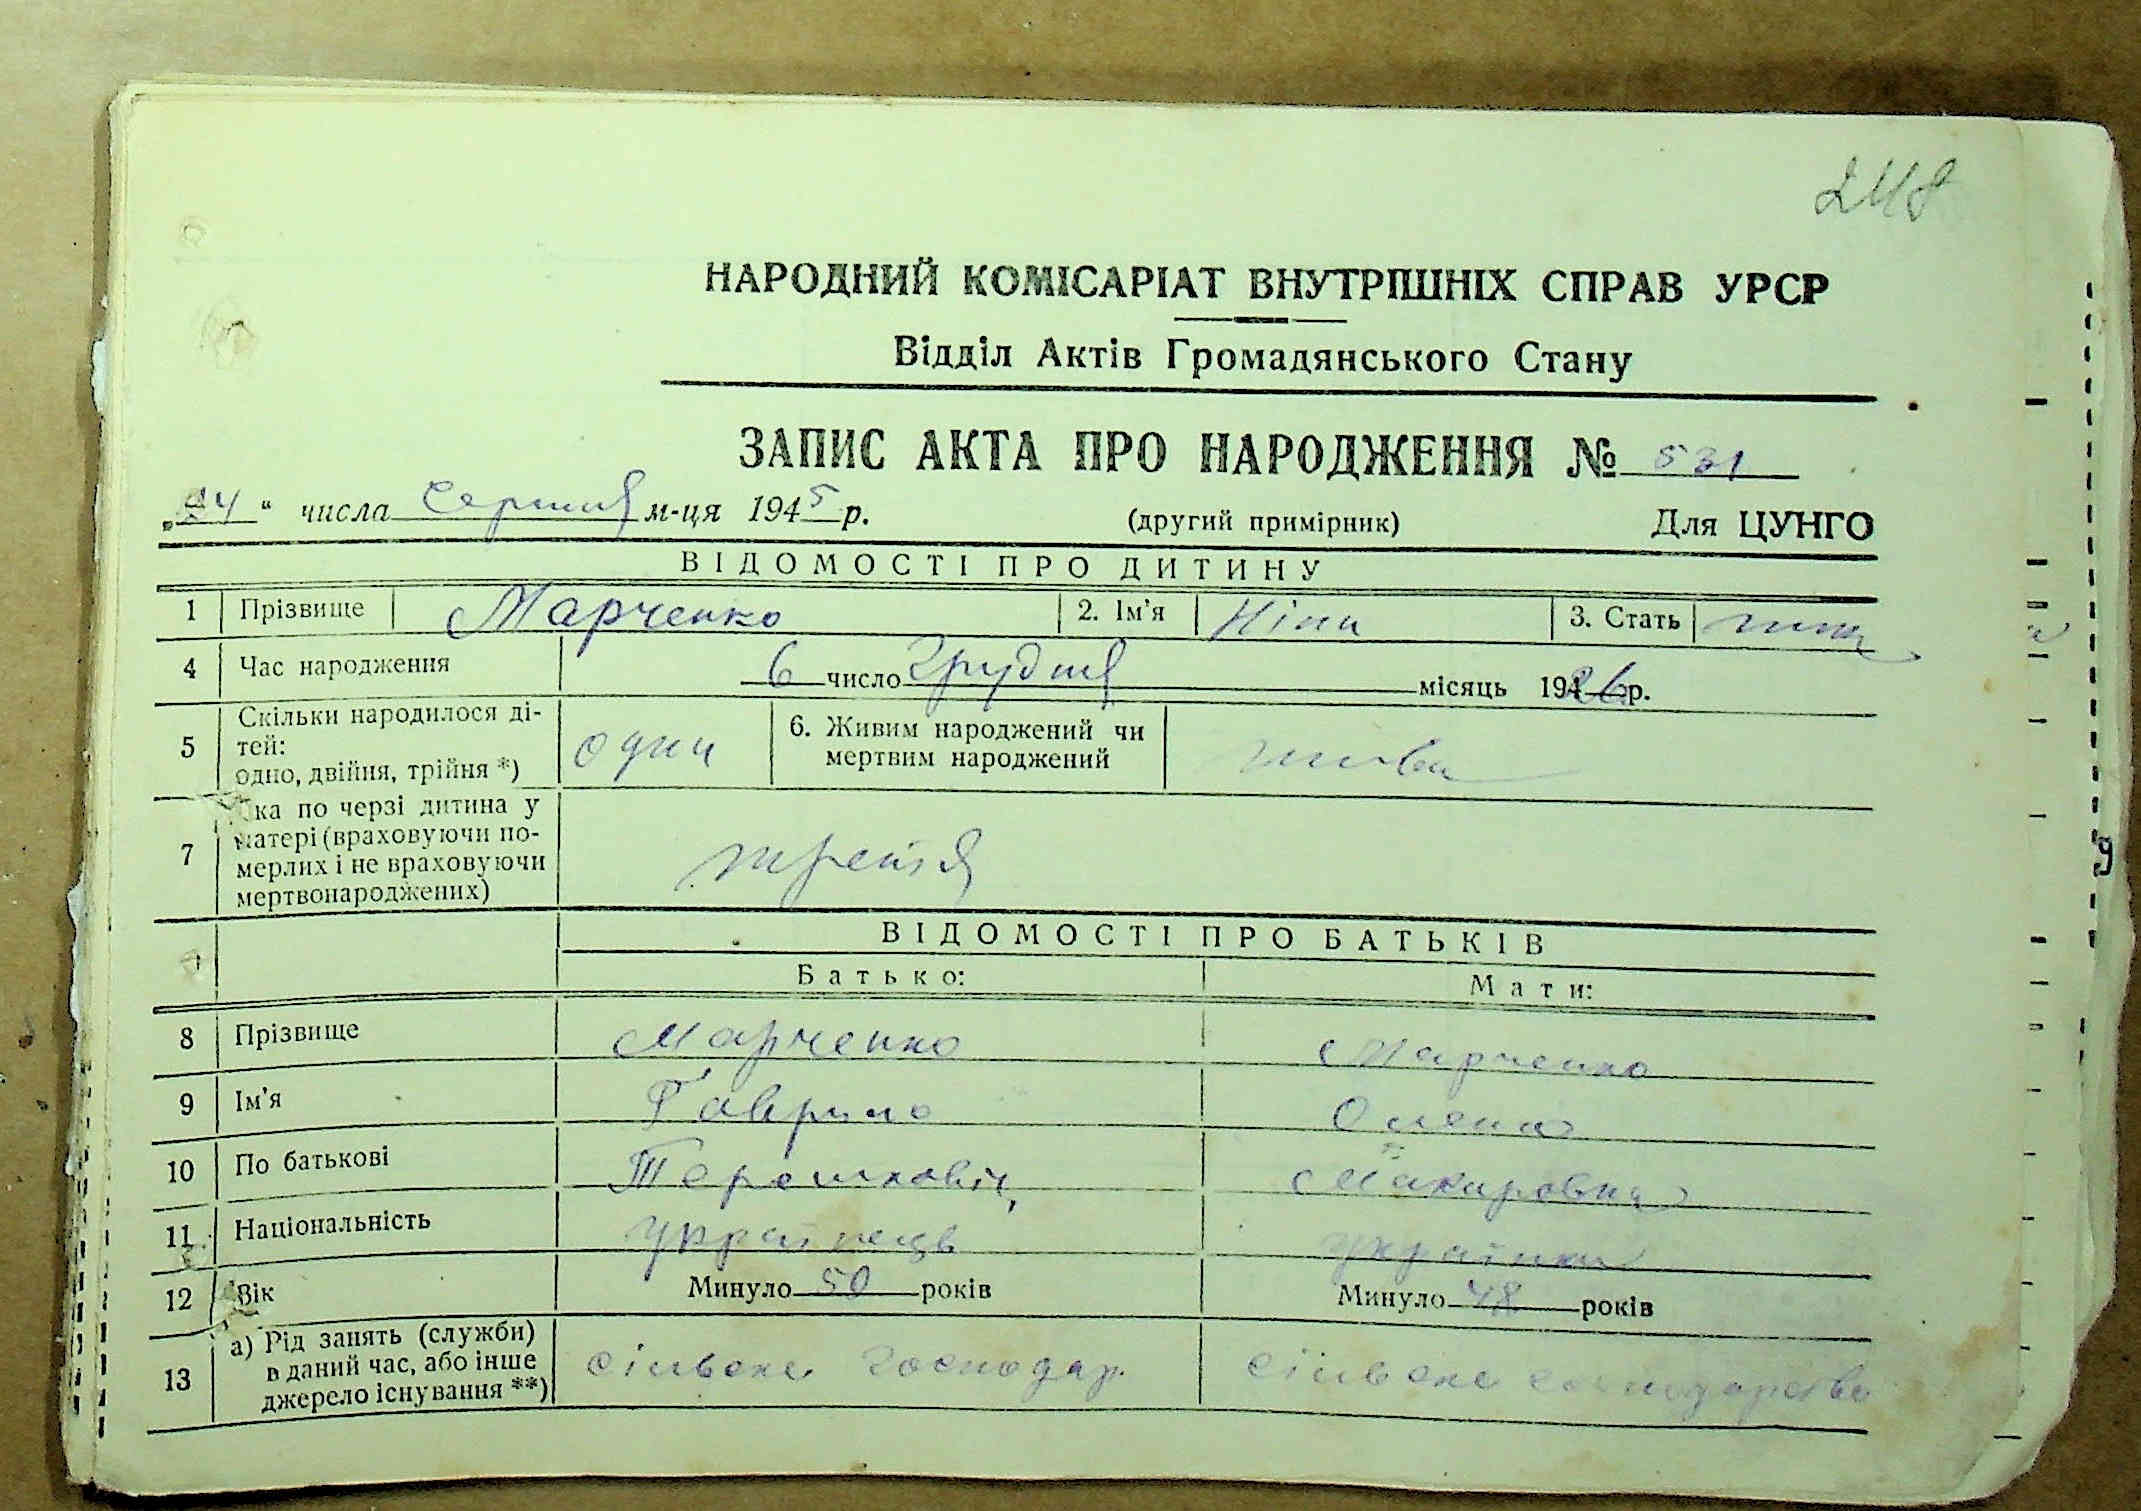 248
НАРОДНИЙ КОМІСАРІАТ ВНУТРІШНІХ СПРАВ УРСР
Відділ Актів Громадянського Стану
ЗАПИС АКТА ПРО НАРОДЖЕННЯ № 531
„24“ числа Серпня м-ця 1945 р. (другий примірник) Для ЦУНГО
ВІДОМОСТІ ПРО ДИТИНУ
1 Прізвище Марченко 2. Ім'я Ніна 3. Стать жін
4 Час народження 6 число Грудня місяць 1926 р.
5 Скільки народилося ді-
тей:
одно, двійня, трійня *) одна 6. Живим народжений чи
мертвим народжений жива
7 Яка по черзі дитина у
матері (враховуючи по-
мерлих і не враховуючи
мертвонароджених) третя
ВІДОМОСТІ ПРО БАТЬКІВ
Батько: Мати:
8 Прізвище Марченко Марченко
9 Ім'я Гаврило Олена
10 По батькові Терешкович Макаровна
11 Національність українець українка
12 Вік Минуло 50 років Минуло 48 років
13 а) Рід занять (служби)
в даний час, або інше
джерело існування **) сільське господар. сільське господарство
9